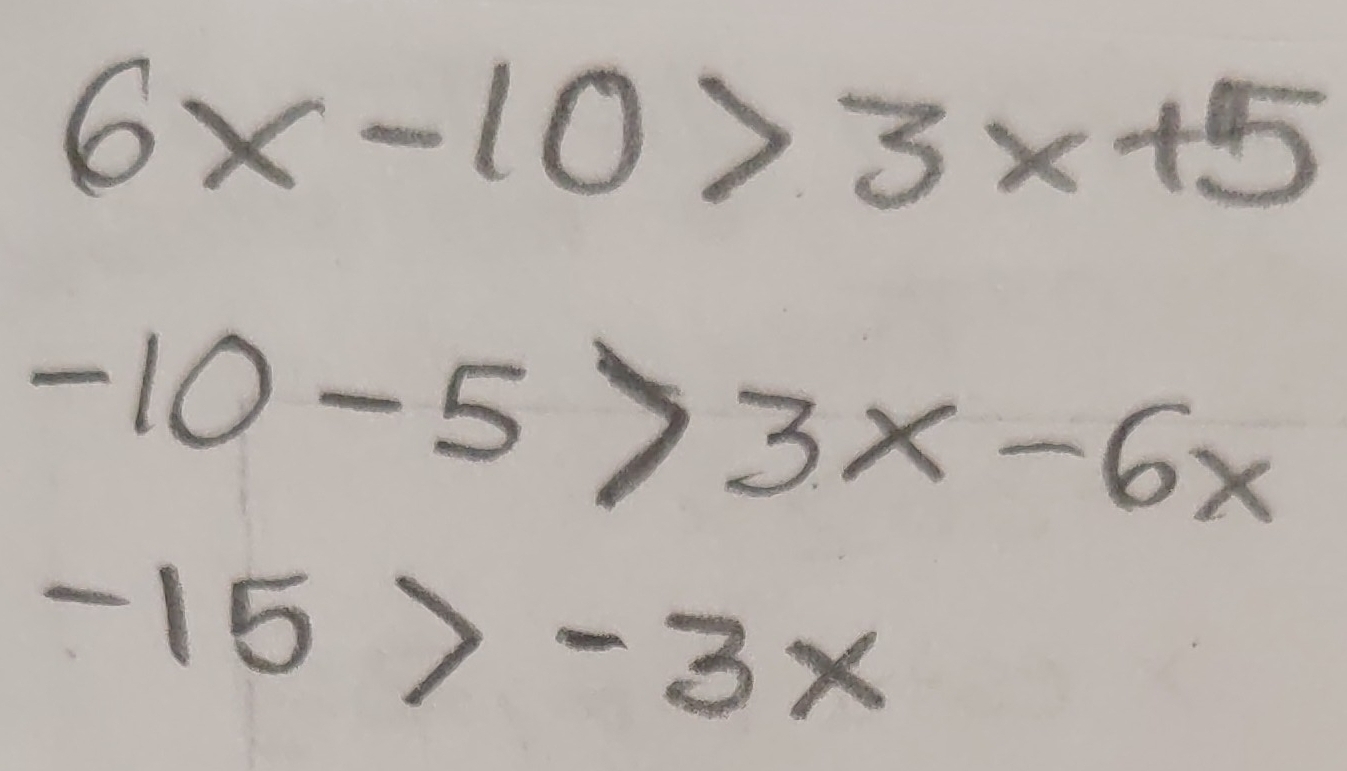 6x - 10 > 3x + 5
-10 - 5 > 3x - 6x
-15 > -3x